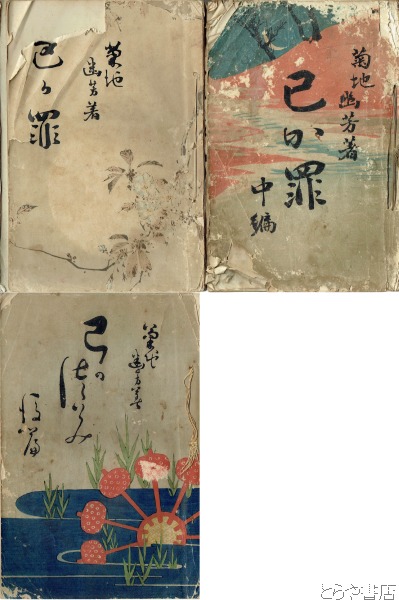 己が罪
菊地
幽芳著
己が罪
菊地幽芳著
中編
己の
つみ
菊地
幽芳著
後篇
とらや書店